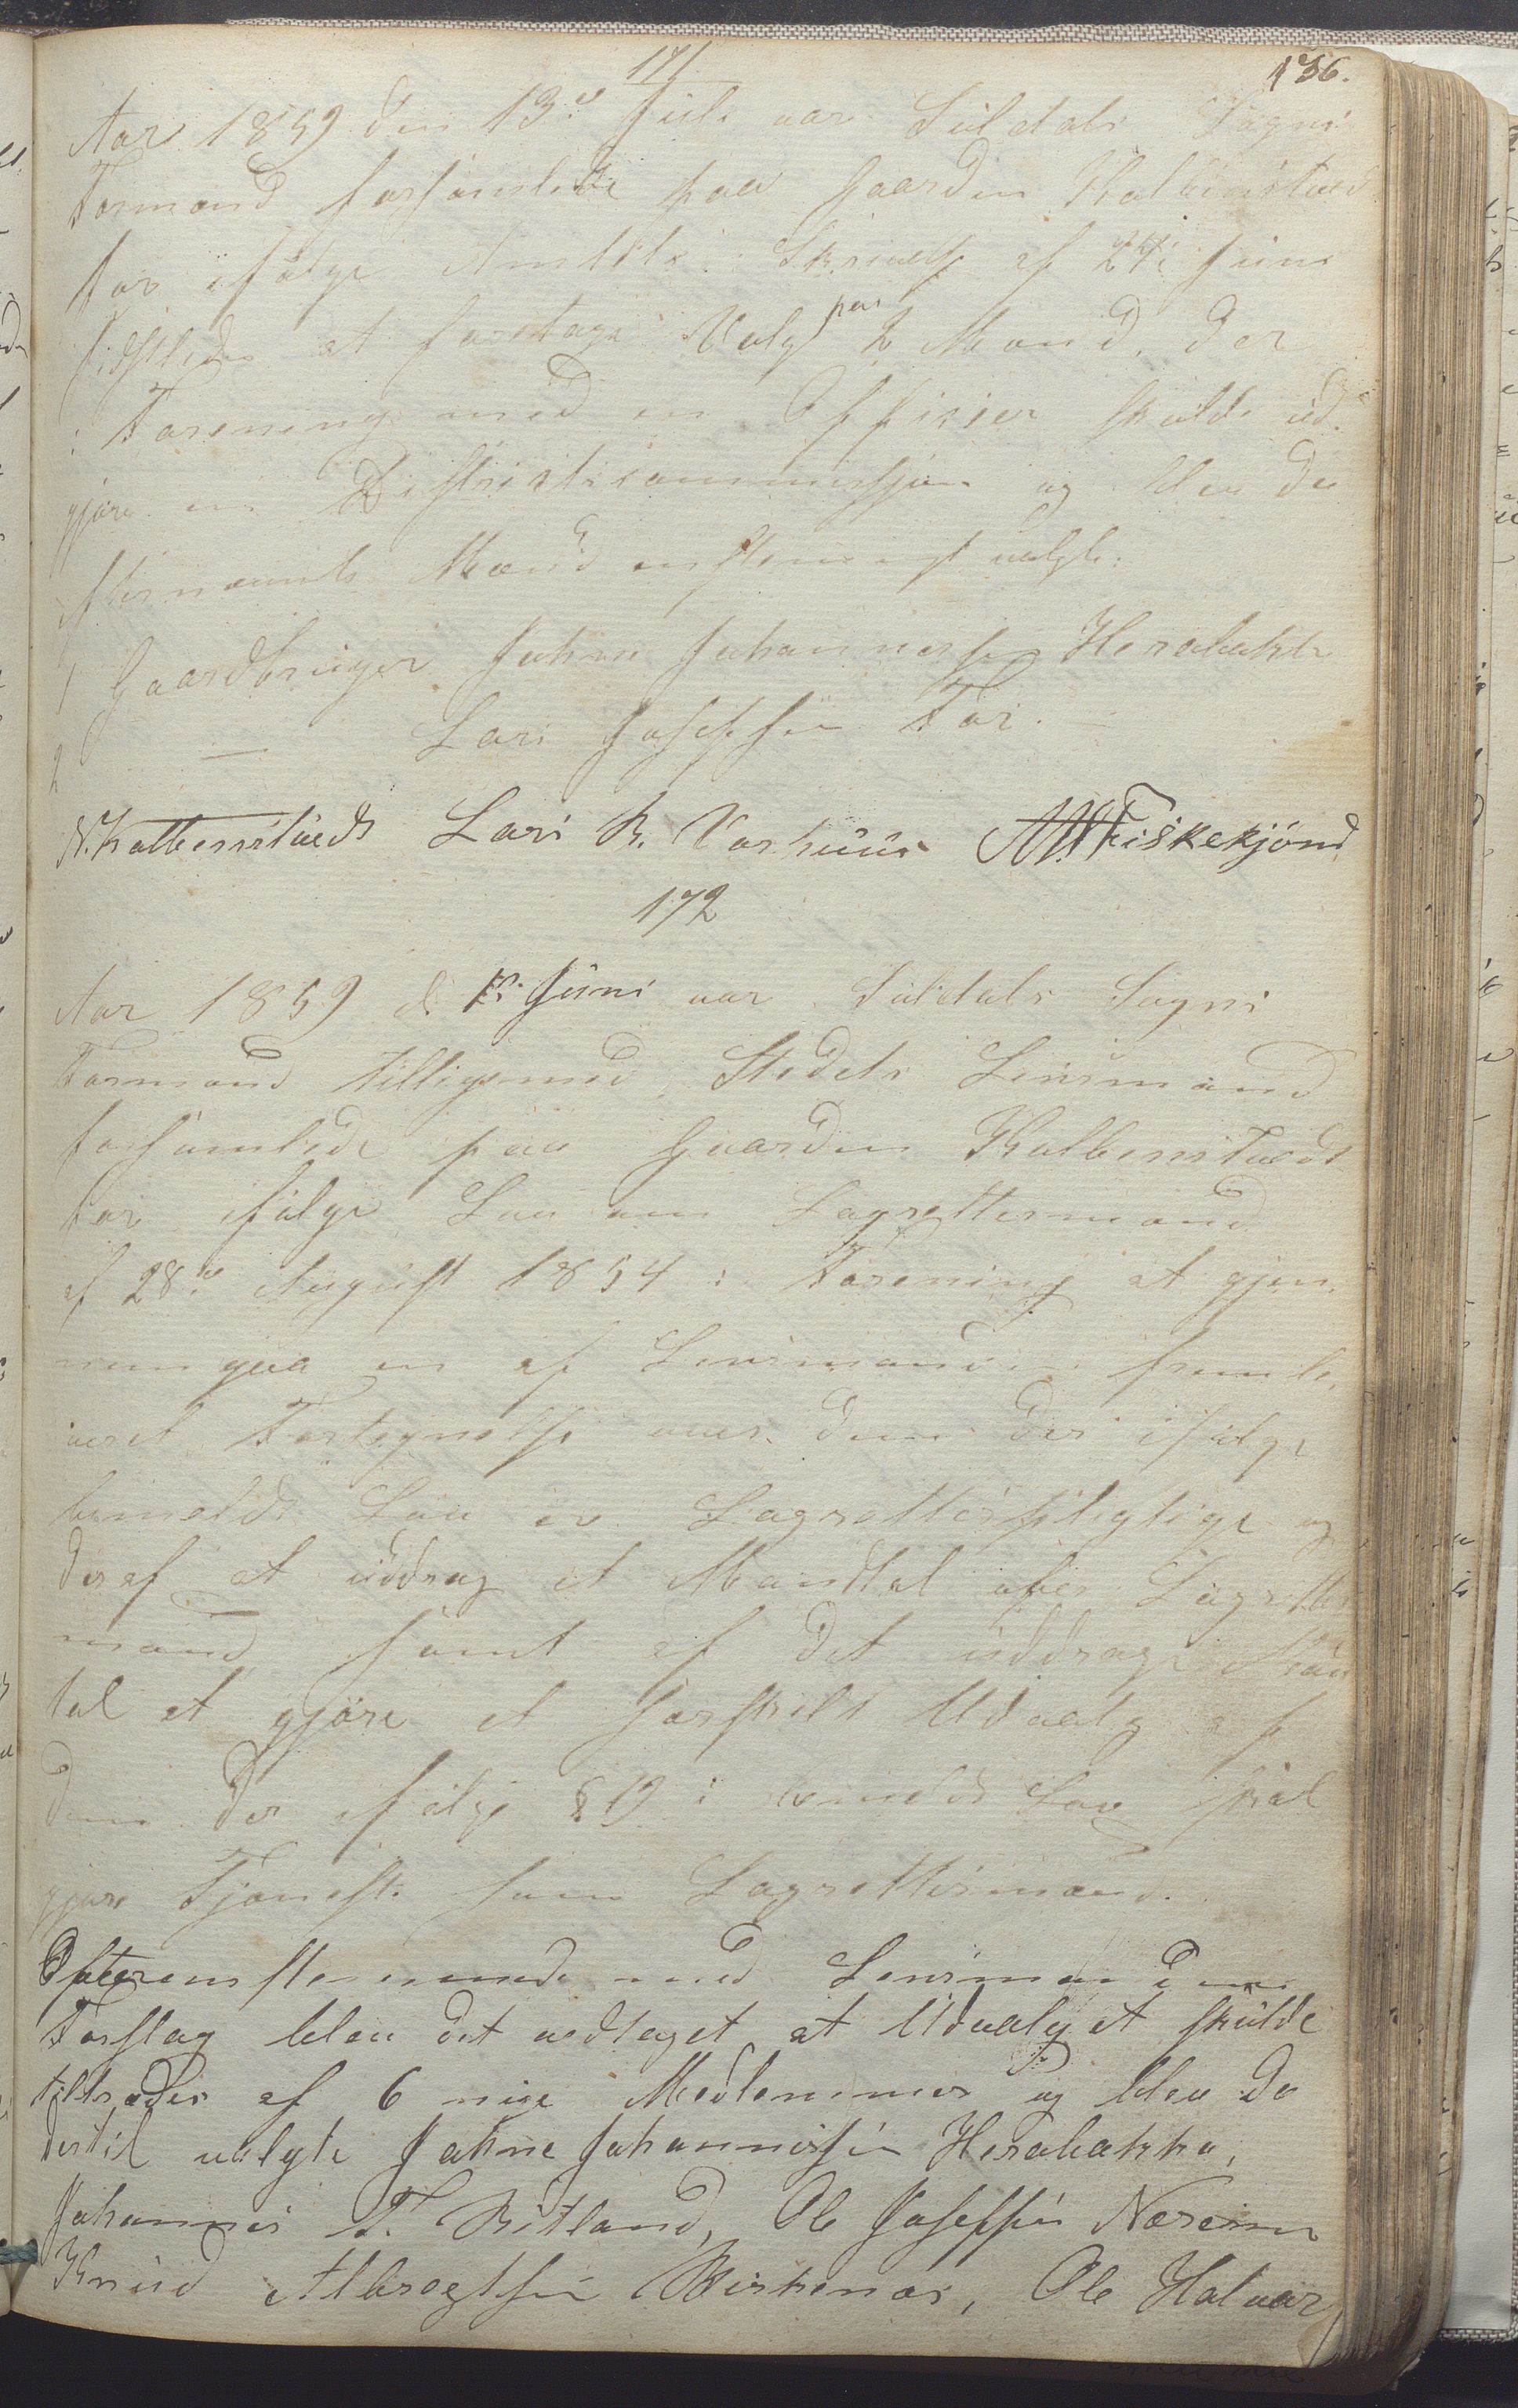 171
136.
Aar 1859 den 13de Juli var Suldals Sogns
Formænd forsamlede paa Gaarden Kalbenstvedt
for ifølge Amtets Skrivelse af 24de Juni
sidstleden at foretage Valg paa 2 Mænd, der
i Forening med en Officier skulde ud-
gjøre en Districtscommission og blev da
efternævnte Mænd enstemigt valgte:
1 Gaardbruger Johne Johannessen Herabakke
2 — Lars Josephsen Foss. —
N. Kalbenstvedt Lars B. Vashuus Fiskekjönd
172
Aar 1859 d. Juni var Suldals Sogns
Formænd tilligemed Stedets Lensmand
forsamlede paa Gaarden Kalbenstvedt
for ifølge Lov om Lagrettesmænd
af 28de August 1854 i Forening at gjen-
nemgaa en af Lensmanden fremle-
veret Fortegnelse over dem der ifølge
bemeldte Lov er Lagrettespligtige og
deraf at uddrag et Mandtal over Lagrettes
mænd samt af det uddragne Man
tal at gjøre et særskilt Udvalg af
dem der ifølge § 19 i bemeldte Lov skal
gjøre Tjeneste som Lagrettesmænd.
Overensstemmende med Lensmandens
Forslag blev det vedtaget at Udvalget skulde
tiltrædes af 6 nye Medlemmer og blev da
dertil valgte Johne Johannessen Herabakka,
Johannes T. Bitland, Ole Josephsen Næreim
Knud Albregtsen Birkenæs, Ole Halvor